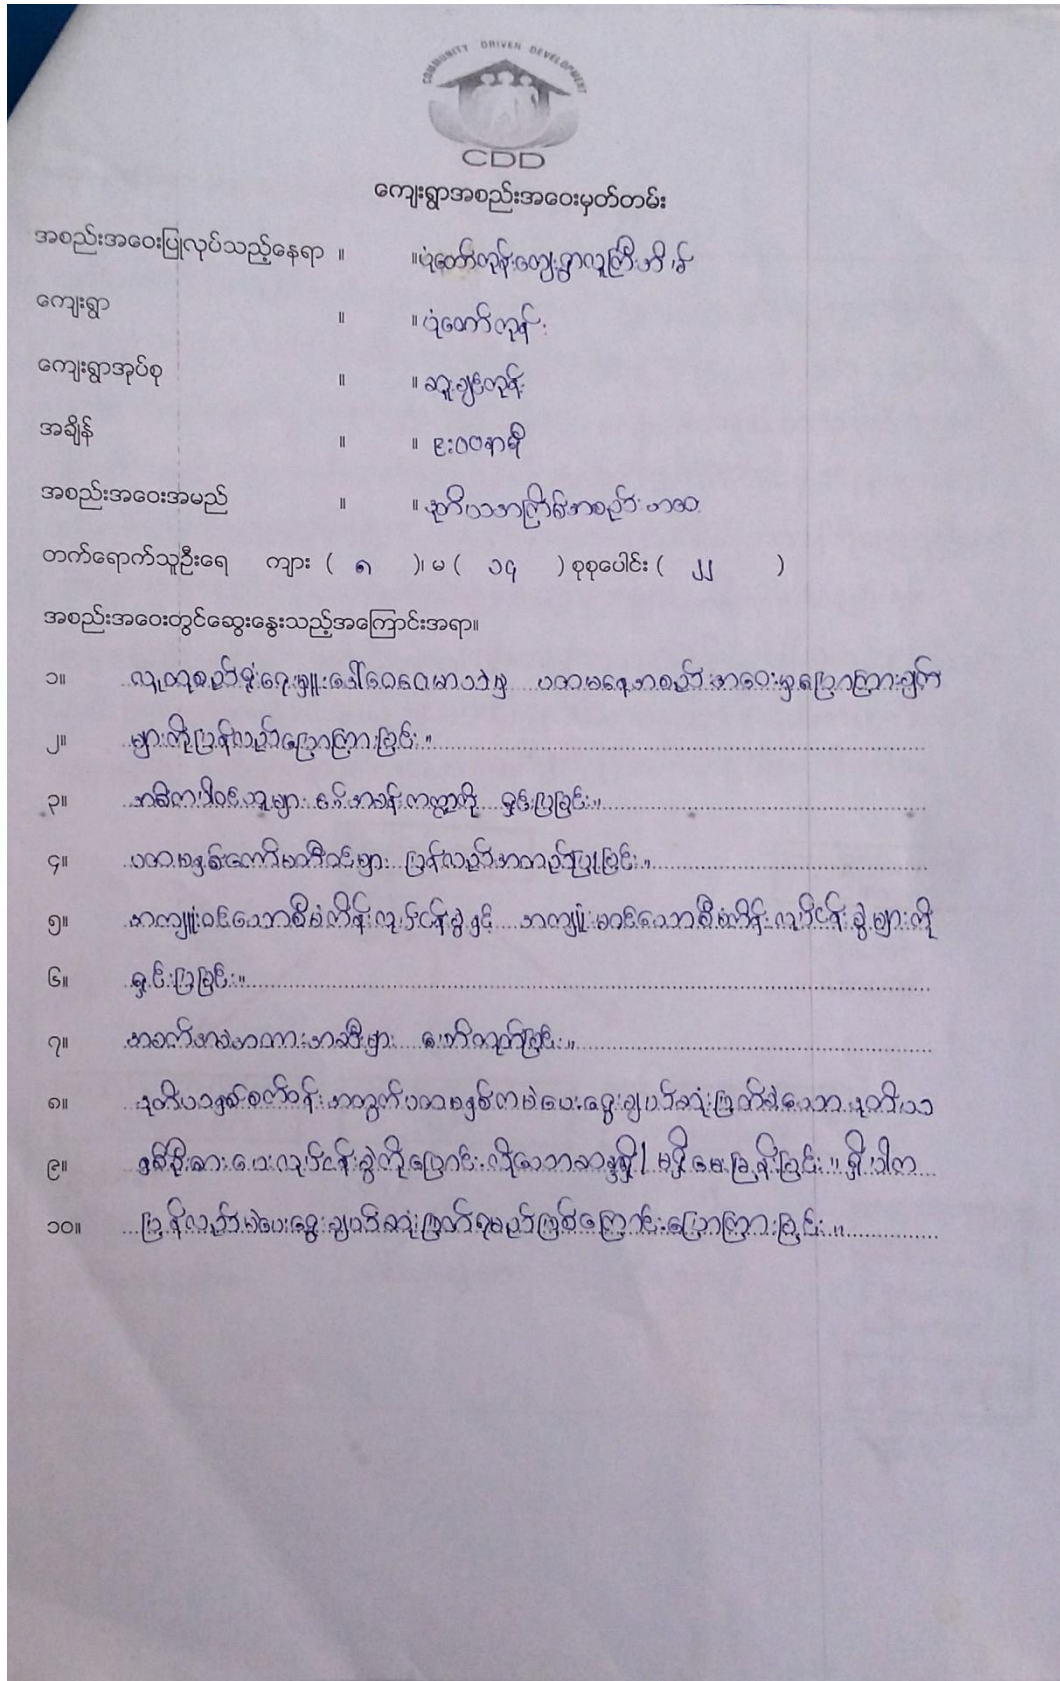 COMMUNITY DRIVEN DEVELOPMENT
CDD
ကျေးရွာအစည်းအဝေးမှတ်တမ်း
အစည်းအဝေးပြုလုပ်သည့်နေရာ ။ ။ပုံတော်ကုန်းကျေးရွာလူကြီးအိမ်
ကျေးရွာ ။ ။ ပုံတော်ကုန်း
ကျေးရွာအုပ်စု ။ ။ ဆူးချင်းကုန်း
အချိန် ။ ။ ၉:၀၀နာရီ
အစည်းအဝေးအမည် ။ ။ ဒုတိယအကြိမ်အစည်းအဝေး
တက်ရောက်သူဦးရေ ကျား ( ၈ )၊ မ ( ၁၄ ) စုစုပေါင်း ( ၂၂ )
အစည်းအဝေးတွင်ဆွေးနွေးသည့်အကြောင်းအရာ။
၁။ လူထုစည်းရုံးရေးမှူးဒေါ် ပထမနေ့အစည်းအဝေးမှပြောကြားချက်
၂။ များကိုပြန်လည်ပြောကြားခြင်း။
၃။ အဓိကပါဝင်သူများ၏အခန်းကဏ္ဍကို ရှင်းပြခြင်း။
၄။ ပထမနှစ်ကော်မတီဝင်များ ပြန်လည်အတည်ပြုခြင်း။
၅။ အကျုံးဝင်သောစီမံကိန်းလုပ်ငန်းခွဲနှင့် အကျုံးမဝင်သောစီမံကိန်းလုပ်ငန်းခွဲများကို
၆။ ရှင်းပြခြင်း။
၇။ အခက်အခဲအတားအဆီးများ ကောက်ခြင်း။
၈။ ဒုတိယနှစ်စက်ဝန်းအတွက်ပထမနှစ်ကမဲပေးရွေးချယ်ဆုံးဖြတ်ခဲ့သောဒုတိယ
၉။ နှစ်ဦးစားပေးလုပ်ငန်းခွဲကိုပြောင်းလိုသောဆန္ဒရှိ/မရှိမေးမြန်းခြင်း။ ရှိပါက
၁၀။ ပြန်လည်မဲပေးရွေးချယ်ဆုံးဖြတ်ရမည်ဖြစ်ကြောင်းပြောကြားခြင်း။